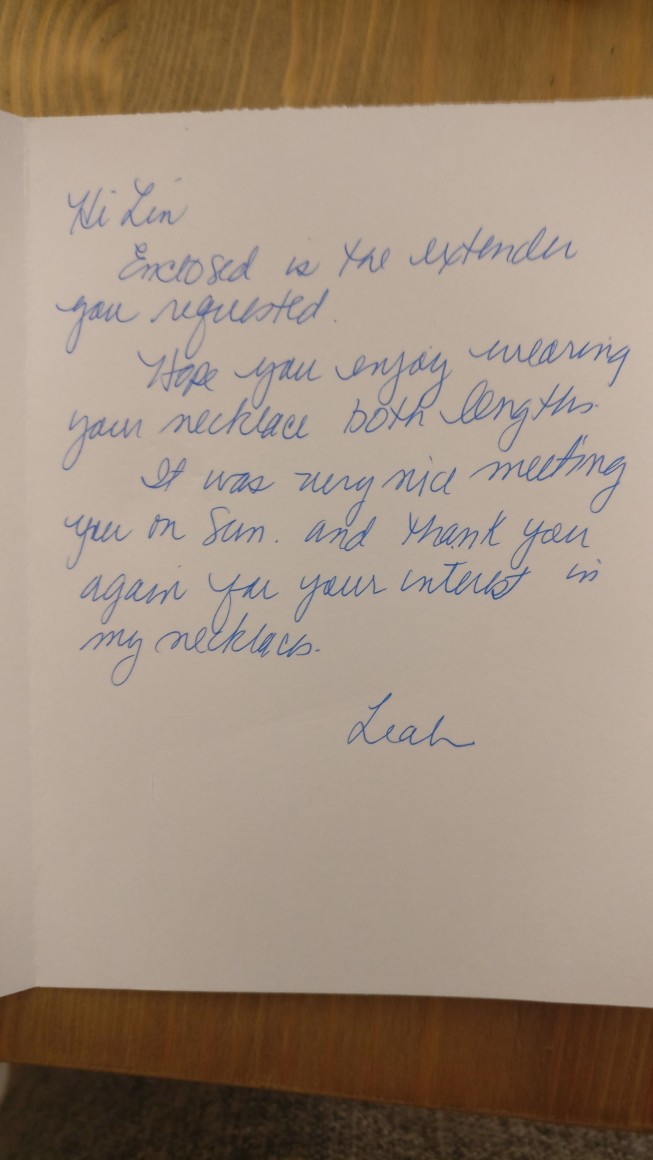 Hi Lin
Enclosed is the extender
you requested.
Hope you enjoy wearing
your necklace both lengths.
It was very nice meeting
you on Sun. and thank you
again for your interest in
my necklaces.
Leah